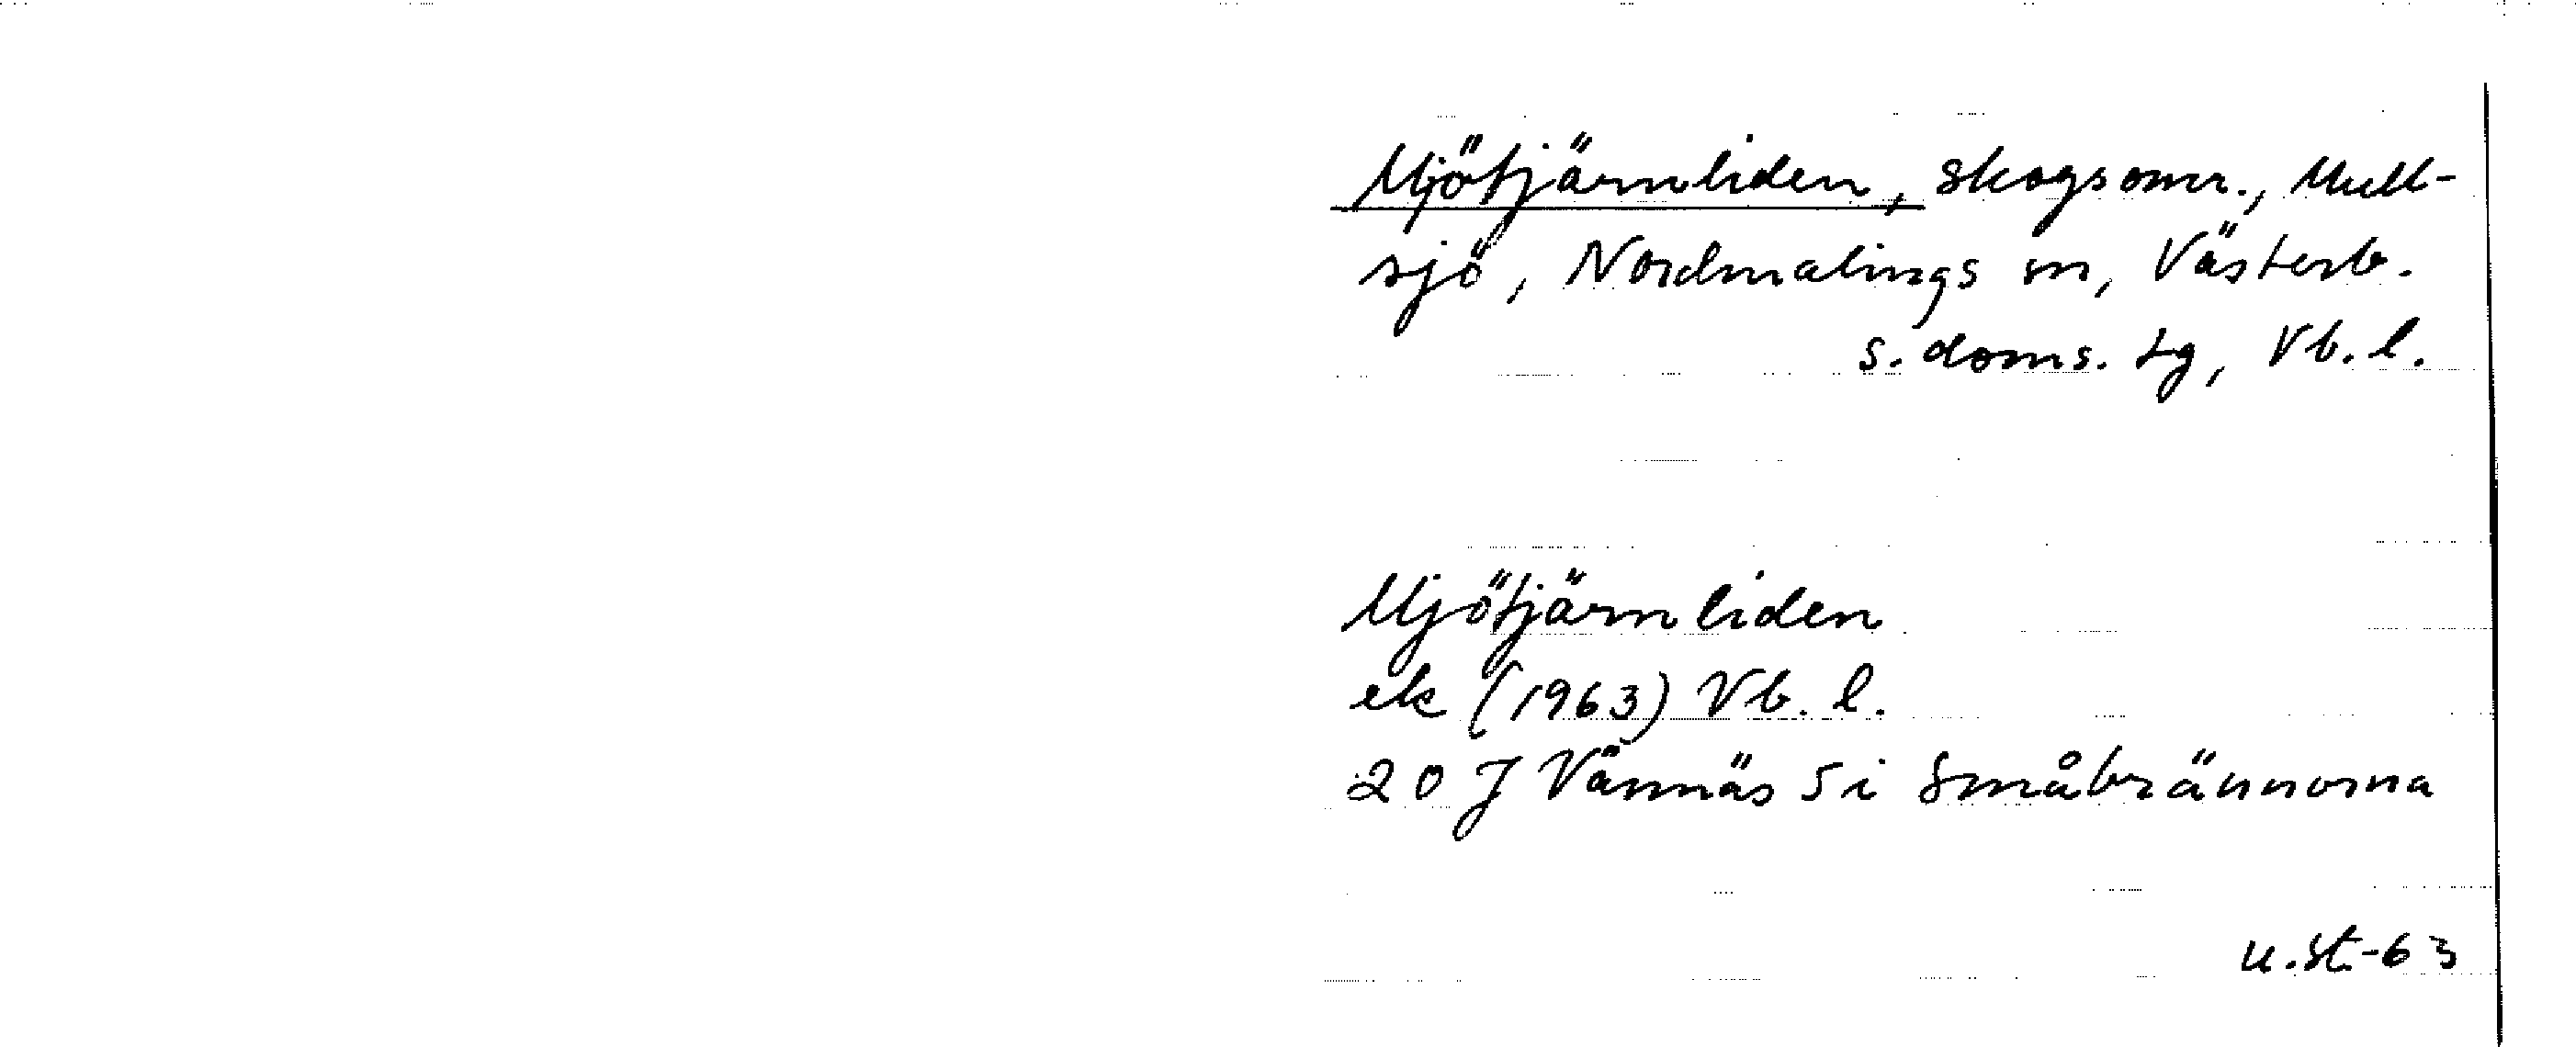 Mjötjärnliden, skogsomr., Mull-
sjö, Nordmalings sn, Västerb.
s. doms. tg, Vb. l.
Mjötjärnliden
ek (1963) Vb. l.
20 J Vännäs 5 i Småbrännorna
u.st-63